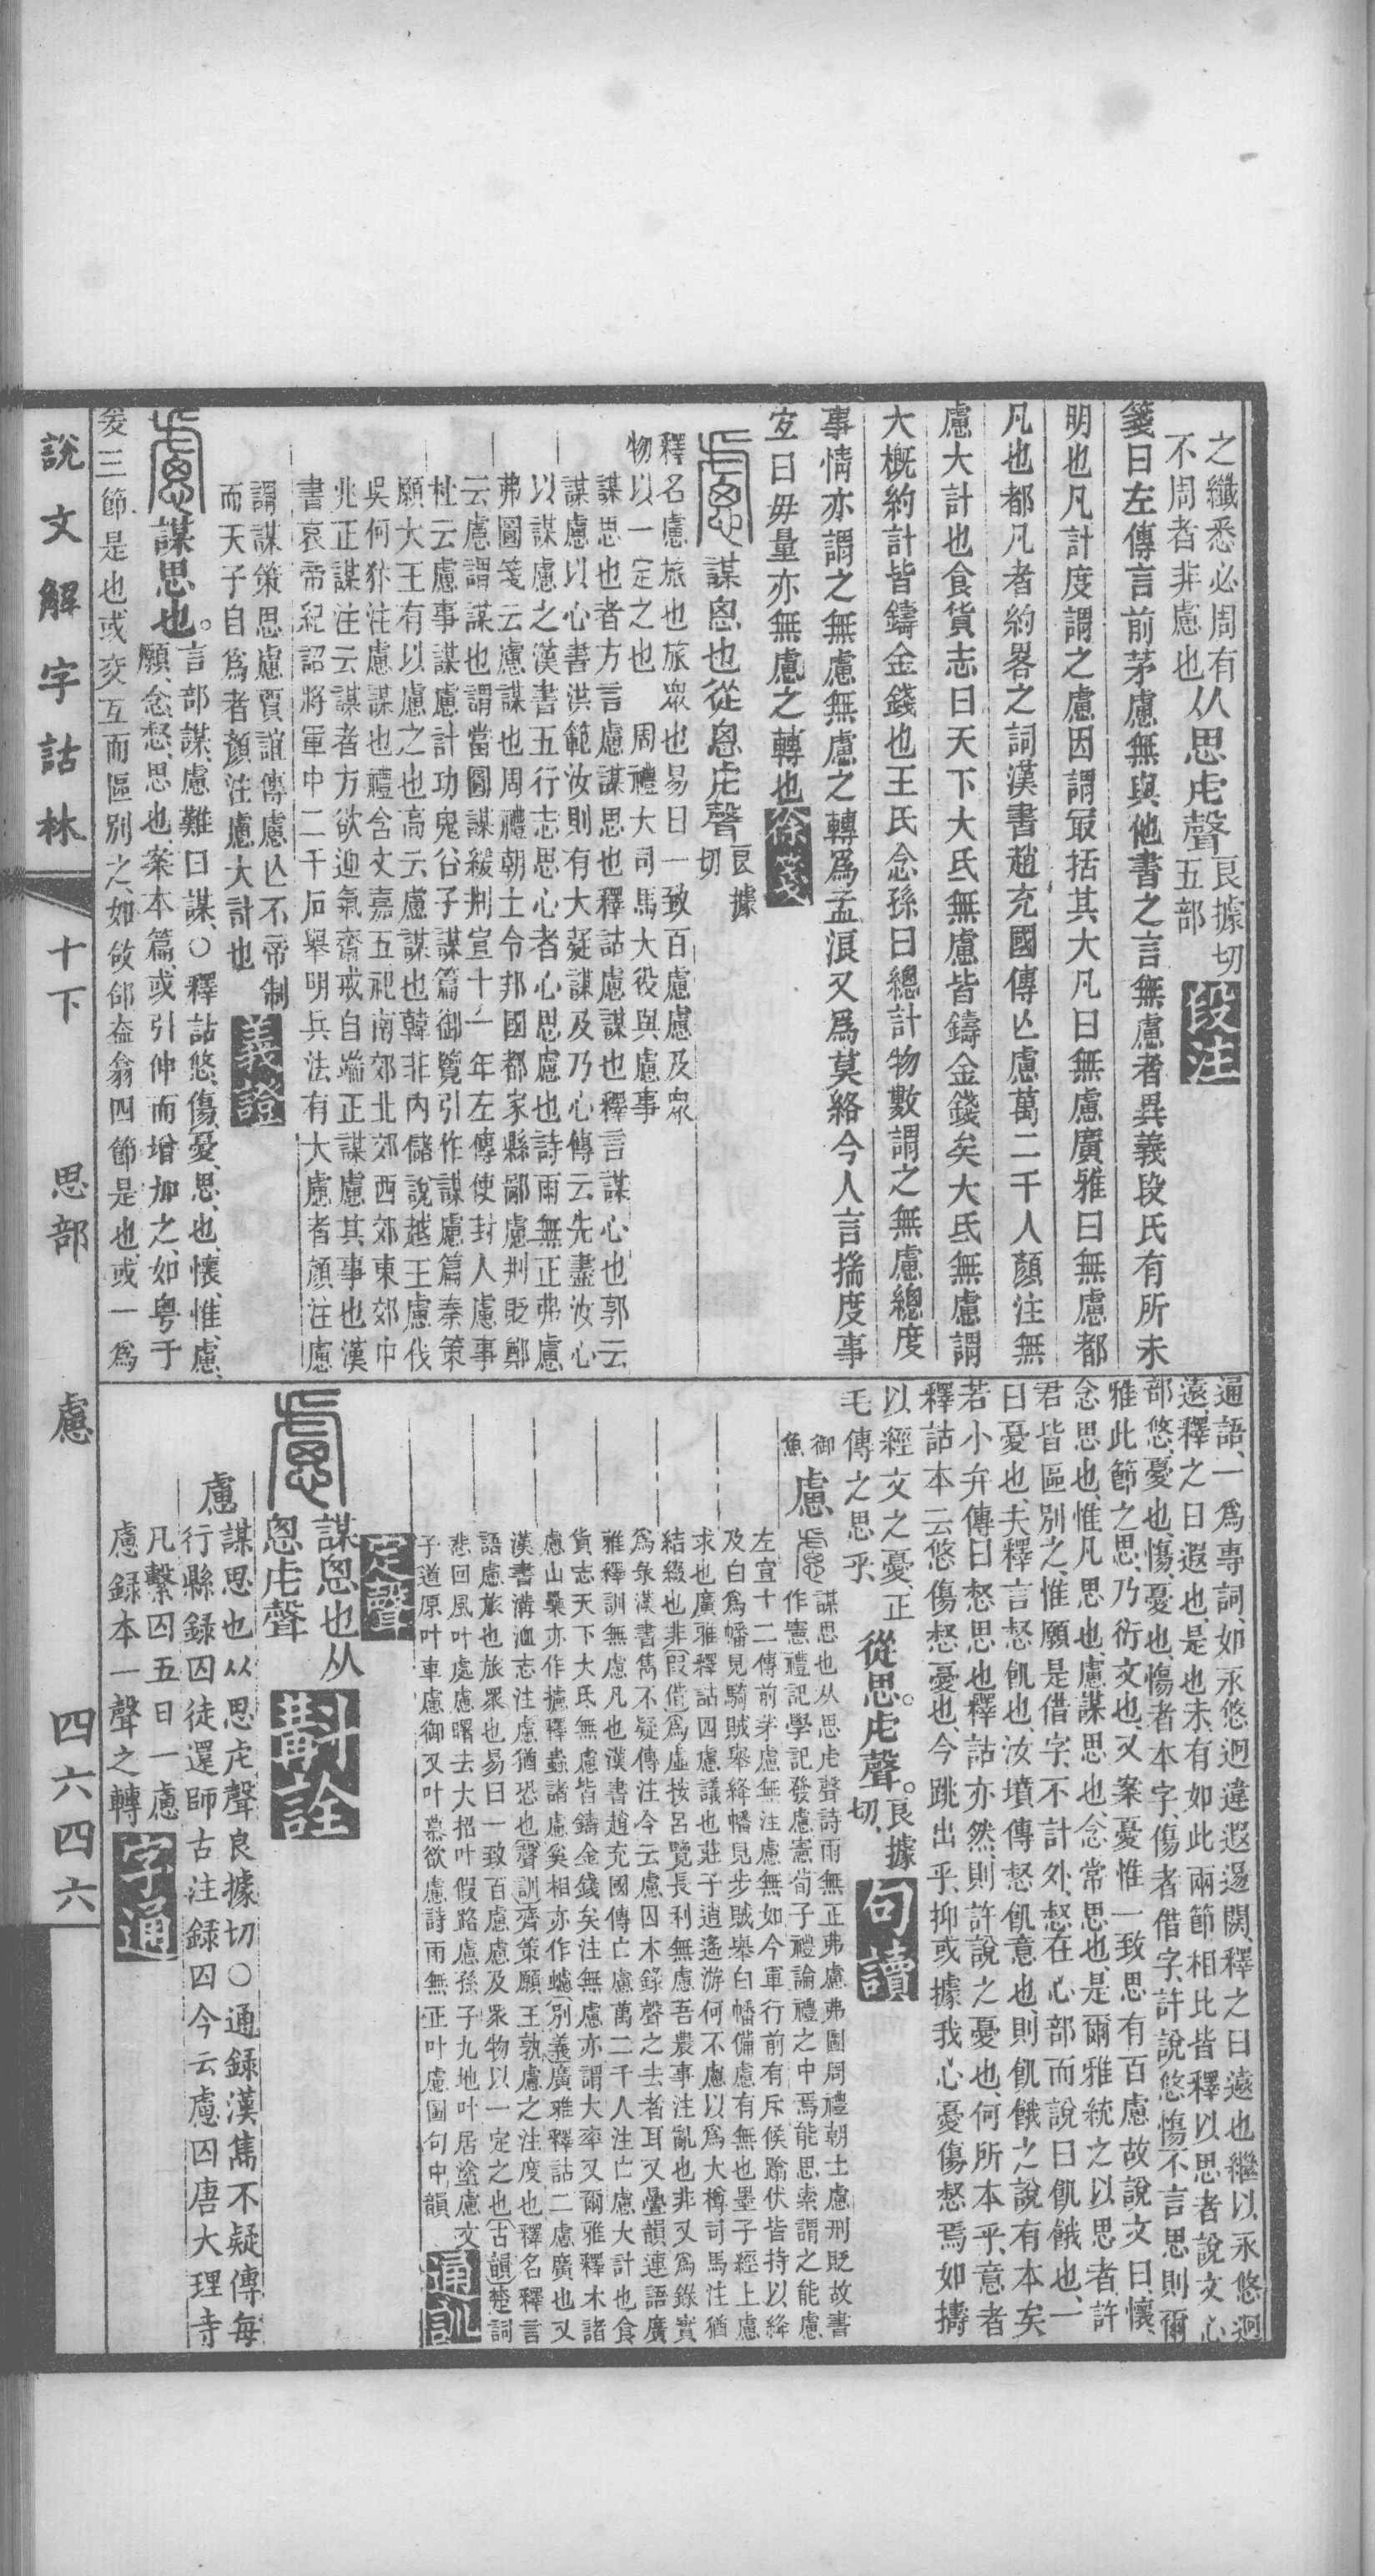 之纖悉必周有
不周者非慮也
从思虍聲
良據切
五部
段注
箋曰左傳言前茅慮無與他書之言無慮者異義段氏有所未
明也凡計度謂之慮因謂冣括其大凡曰無慮廣雅曰無慮都
凡也都凡者約畧之詞漢書趙充國傳亾慮萬二千人顏注無
慮大計也食貨志曰天下大氐無慮皆鑄金錢矣大氐無慮謂
大概約計皆鑄金錢也王氏念孫曰總計物數謂之無慮總度
事情亦謂之無慮無慮之轉爲孟浪又爲莫絡今人言揣度事
宐曰毋量亦無慮之轉也
徐箋
謀恖也從恖虍聲
良據
切
釋名慮旅也旅衆也易曰一致百慮慮及衆
物以一定之也 周禮大司馬大役與慮事
謀思也者方言慮謀思也釋詁慮謀也釋言謀心也郭云
謀慮以心書洪範汝則有大疑謀及乃心傳云先盡汝心
以謀慮之漢書五行志思心者心思慮也詩雨無正弗慮
弗圖箋云慮謀也周禮朝士令邦國都家縣鄙慮刑貶鄭
云慮謂謀也謂當圖謀緩刑宣十一年左傳使封人慮事
杜云慮事謀慮計功鬼谷子謀篇御覽引作謀慮篇秦策
願大王有以慮之也高云慮謀也韓非內儲說越王慮伐
吳何休注慮謀也禮含文嘉五祀南郊北郊西郊東郊中
兆正謀注云謀者方欲迎氣齋戒自端正謀慮其事也漢
書哀帝紀詔將軍中二千石舉明兵法有大慮者顏注慮
謂謀策思慮賈誼傳慮亾不帝制
而天子自爲者顏注慮大計也
義證
謀思也。
言部謀、慮難曰謀、〇釋詁悠、傷、憂、思、也、懷、惟、慮、
願、念、惄、思也、案本篇、或引伸而增加之、如粵于
爰三節、是也、或交互而區別之、如敆郃盍翕四節是也、或一爲
說文解字詁林
十下
思部
慮
四六四六
通語、一爲專詞、如永悠迥違遐逷闊、釋之曰遠也、繼以永悠迥
遠、釋之曰遐也、是也、未有如此兩節相比、皆釋以思者、說文心
部悠、憂也、慯、憂也、慯者本字、傷者借字、許說悠慯不言思、則爾
雅此節之思、乃衍文也、又案憂惟一致、思有百慮、故說文曰、懷、
念思也、惟凡思也、慮謀思也、念常思也、是爾雅統之以思者、許
君皆區別之、惟願是借字、不計外、惄在心部而說曰飢餓也、一
曰憂也、夫釋言惄飢也、汝墳傳惄飢意也、則飢餓之說有本矣
若小弁傳曰惄思也、釋詁亦然、則許說之憂也、何所本乎、意者
釋詁本云悠傷惄憂也、今跳出乎、抑或據我心憂傷惄焉如擣
以經文之憂、正
毛傳之思乎、
從思。虍聲。
良據
切、
句讀
御
魚
慮
謀思也从思虍聲詩雨無正弗慮弗圖周禮朝士慮刑貶故書
作憲禮記學記發慮憲荀子禮論禮之中焉能思索謂之能慮
左宣十二傳前茅慮無注慮無如今軍行前有斥候蹹伏皆持以絳
及白爲幡見騎賊舉絳幡見步賊舉白幡備慮有無也墨子經上慮
求也廣雅釋詁四慮議也莊子逍遙游何不慮以爲大樽司馬注猶
結綴也非叚借爲虛按呂覽長利無慮吾農事注亂也非又爲錄實
爲彔漢書雋不疑傳注今云慮囚本錄聲之去者耳又疊韻連語廣
雅釋訓無慮凡也漢書趙充國傳亡慮萬二千人注亡慮大計也食
貨志天下大氐無慮皆鑄金錢矣注無慮亦謂大率又爾雅釋木諸
慮山櫐亦作攄釋蟲諸慮奚相亦作蠦別義廣雅釋詁二慮廣也又
漢書溝洫志注慮猶恐也聲訓齊策願王孰慮之注度也釋名釋言
語慮旅也旅衆也易曰一致百慮慮及衆物以一定之也古韻楚詞
悲回風叶處慮曙去大招叶假路慮孫子九地叶居塗慮文
子道原叶車慮御又叶慕欲慮詩雨無正叶慮圖句中韻
通訓
定聲
謀恖也从
恖虍聲
斠詮
慮
謀思也从思虍聲良據切〇通錄漢雋不疑傳每
行縣錄囚徒還師古注錄囚今云慮囚唐大理寺
凡繫囚五日一慮
慮錄本一聲之轉
字通